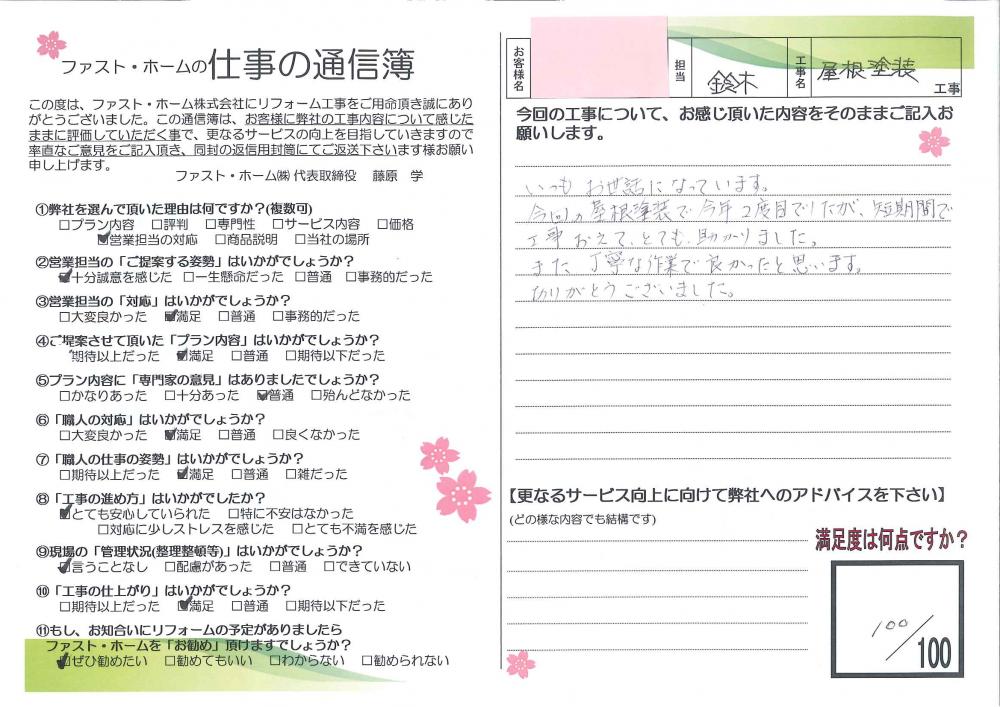 ファスト・ホームの仕事の通信簿
この度は、ファスト・ホーム株式会社にリフォーム工事をご用命頂き誠にあり
がとうございました。この通信簿は、お客様に弊社の工事内容について感じた
ままに評価していただく事で、更なるサービスの向上を目指していきますので
率直なご意見をご記入頂き、同封の返信用封筒にてご返送下さいます様お願い
申し上げます。
ファスト・ホーム㈱ 代表取締役 藤原 学
①弊社を選んで頂いた理由は何ですか?(複数可)
□プラン内容 □評判 □専門性 □サービス内容 □価格
☑営業担当の対応 □商品説明 □当社の場所
②営業担当の「ご提案する姿勢」はいかがでしょうか?
☑十分誠意を感じた □一生懸命だった □普通 □事務的だった
③営業担当の「対応」はいかがでしょうか?
□大変良かった ☑満足 □普通 □事務的だった
④ご提案させて頂いた「プラン内容」はいかがでしょうか?
期待以上だった ☑満足 □普通 □期待以下だった
⑤プラン内容に「専門家の意見」はありましたでしょうか?
□かなりあった □十分あった ☑普通 □殆んどなかった
⑥「職人の対応」はいかがでしょうか?
□大変良かった ☑満足 □普通 □良くなかった
⑦「職人の仕事の姿勢」はいかがでしょうか?
□期待以上だった ☑満足 □普通 □雑だった
⑧「工事の進め方」はいかがでしたか?
☑とても安心していられた □特に不安はなかった
□対応に少しストレスを感じた □とても不満を感じた
⑨現場の「管理状況(整理整頓等)」はいかがでしょうか?
☑言うことなし □配慮があった □普通 □できていない
⑩「工事の仕上がり」はいかがでしょうか?
□期待以上だった ☑満足 □普通 □期待以下だった
⑪もし、お知合いにリフォームの予定がありましたら
ファスト・ホームを「お勧め」頂けますでしょうか?
☑ぜひ勧めたい □勧めてもいい □わからない □勧められない
お客様名
担当 鈴木
工事名 屋根塗装 工事
今回の工事について、お感じ頂いた内容をそのままご記入お
願いします。
いつもお世話になっています。
今回の屋根塗装で今年2度目でしたが、短期間で
工事おえて、とても助かりました。
また丁寧な作業で良かったと思います。
ありがとうございました。
【更なるサービス向上に向けて弊社へのアドバイスを下さい】
(どの様な内容でも結構です)
満足度は何点ですか?
100/100